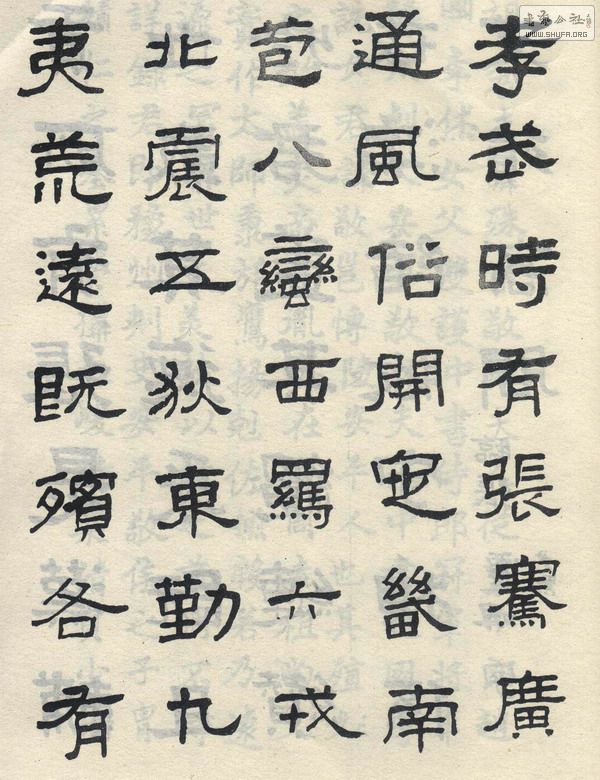 孝武時有張騫廣
通風俗開定畿南
苞八蠻西羈六戎
北震五狄東勤九
夷荒遠既殯各有
WWW.SHUFA.ORG